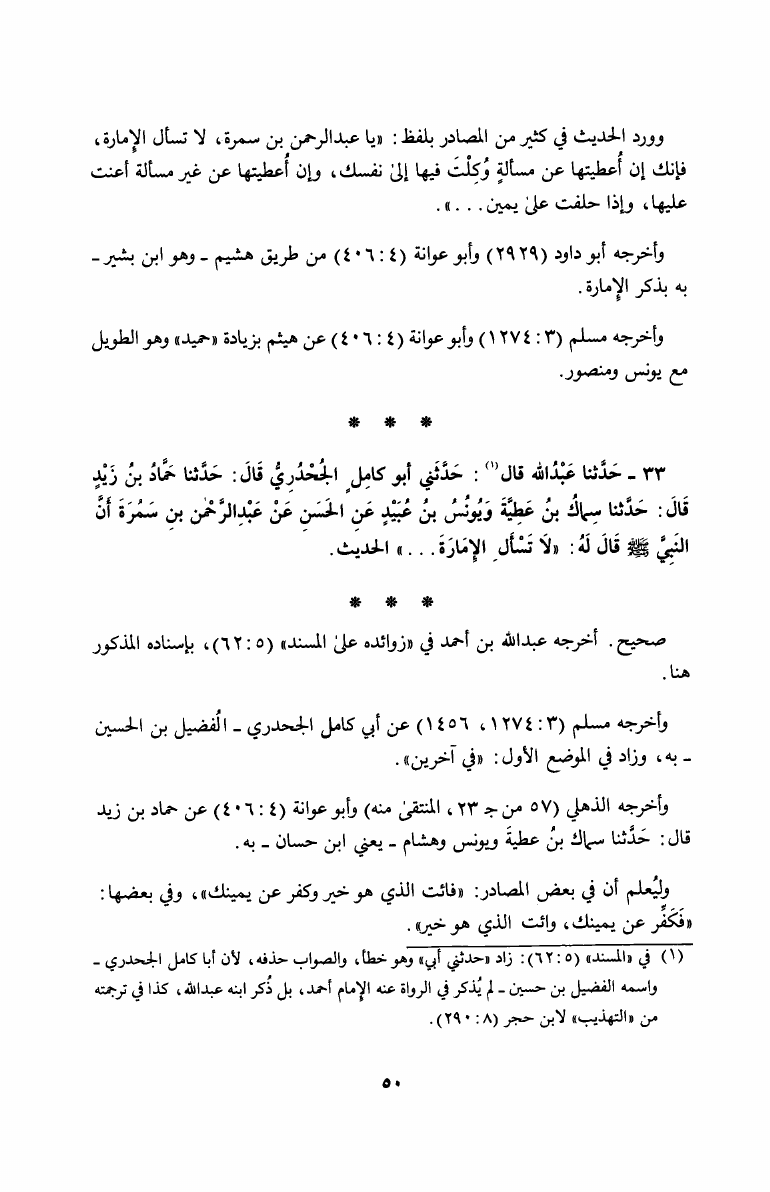 وورد الحديث في كثير من المصادر بلفظ: «يا عبدالرحمن بن سمرة، لا تسأل الإمارة،
فإنك إن أُعطيتها عن مسألةٍ وُكِلْتَ فيها إلىٰ نفسك، وإن أُعطيتها عن غير مسألة أعنت
عليها، وإذا حلفت علىٰ يمين...».
وأخرجه أبو داود (٢٩٢٩) وأبو عوانة (٤: ٤٠٦) من طريق هشيم - وهو ابن بشير -
به بذكر الإمارة.
وأخرجه مسلم (٣: ١٢٧٤) وأبو عوانة (٤: ٤٠٦) عن هيثم بزيادة «حميد» وهو الطويل
مع يونس ومنصور.
* * *
٣٣ - حَدَّثنا عَبْدُالله قال(١): حَدَّثَنِي أبو كامِلٍ الجُحْدُرِيُّ قَالَ: حَدَّثنا حَمَّادُ بنُ زَيْدٍ
قَالَ: حَدَّثنا سِماكُ بنُ عَطِيَّةَ وَيُونُسُ بنُ عُبَيْدٍ عَنِ الحَسَنِ عَنْ عَبْدِالرَّحْمٰنِ بنِ سَمُرَةَ أَنَّ
النَّبِيَّ ﷺ قَالَ لَهُ: «لَا تَسْأَلِ الإِمَارَةَ...» الحديث.
* * *
صحيح. أخرجه عبدالله بن أحمد في «زوائده علىٰ المسند» (٥: ٦٢)، بإسناده المذكور
هنا.
وأخرجه مسلم (٣: ١٢٧٤، ١٤٥٦) عن أبي كامل الجحدري - الُفضيل بن الحسين
- به، وزاد في الموضع الأول: «في آخرين».
وأخرجه الذهلي (٥٧ من جـ ٢٣، المنتقىٰ منه) وأبو عوانة (٤: ٤٠٦) عن حماد بن زيد
قال: حَدَّثنا سماك بنُ عطيةَ ويونس وهشام - يعني ابن حسان - به.
وليُعلم أن في بعض المصادر: «فائت الذي هو خير وكفر عن يمينك»، وفي بعضها:
«فَكَفِّر عن يمينك، وائت الذي هو خير».
(١) في «المسند» (٥: ٦٢): زاد «حدثني أبي» وهو خطأ، والصواب حذفه، لأن أبا كامل الجحدري -
واسمه الفضيل بن حسين - لم يُذكر في الرواة عنه الإمام أحمد، بل ذُكر ابنه عبدالله، كذا في ترجمته
من «التهذيب» لابن حجر (٨: ٢٩٠).
٥٠